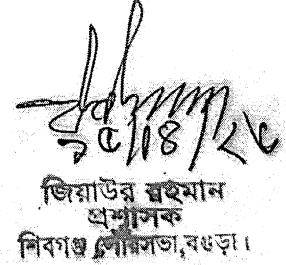 জিয়াউর রহমান
প্রশাসক
শিবগঞ্জ পৌরসভা,বগুড়া।